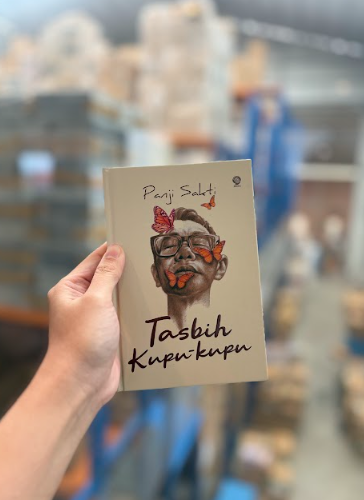 Panji Sakti
Tasbih
Kupu-kupu